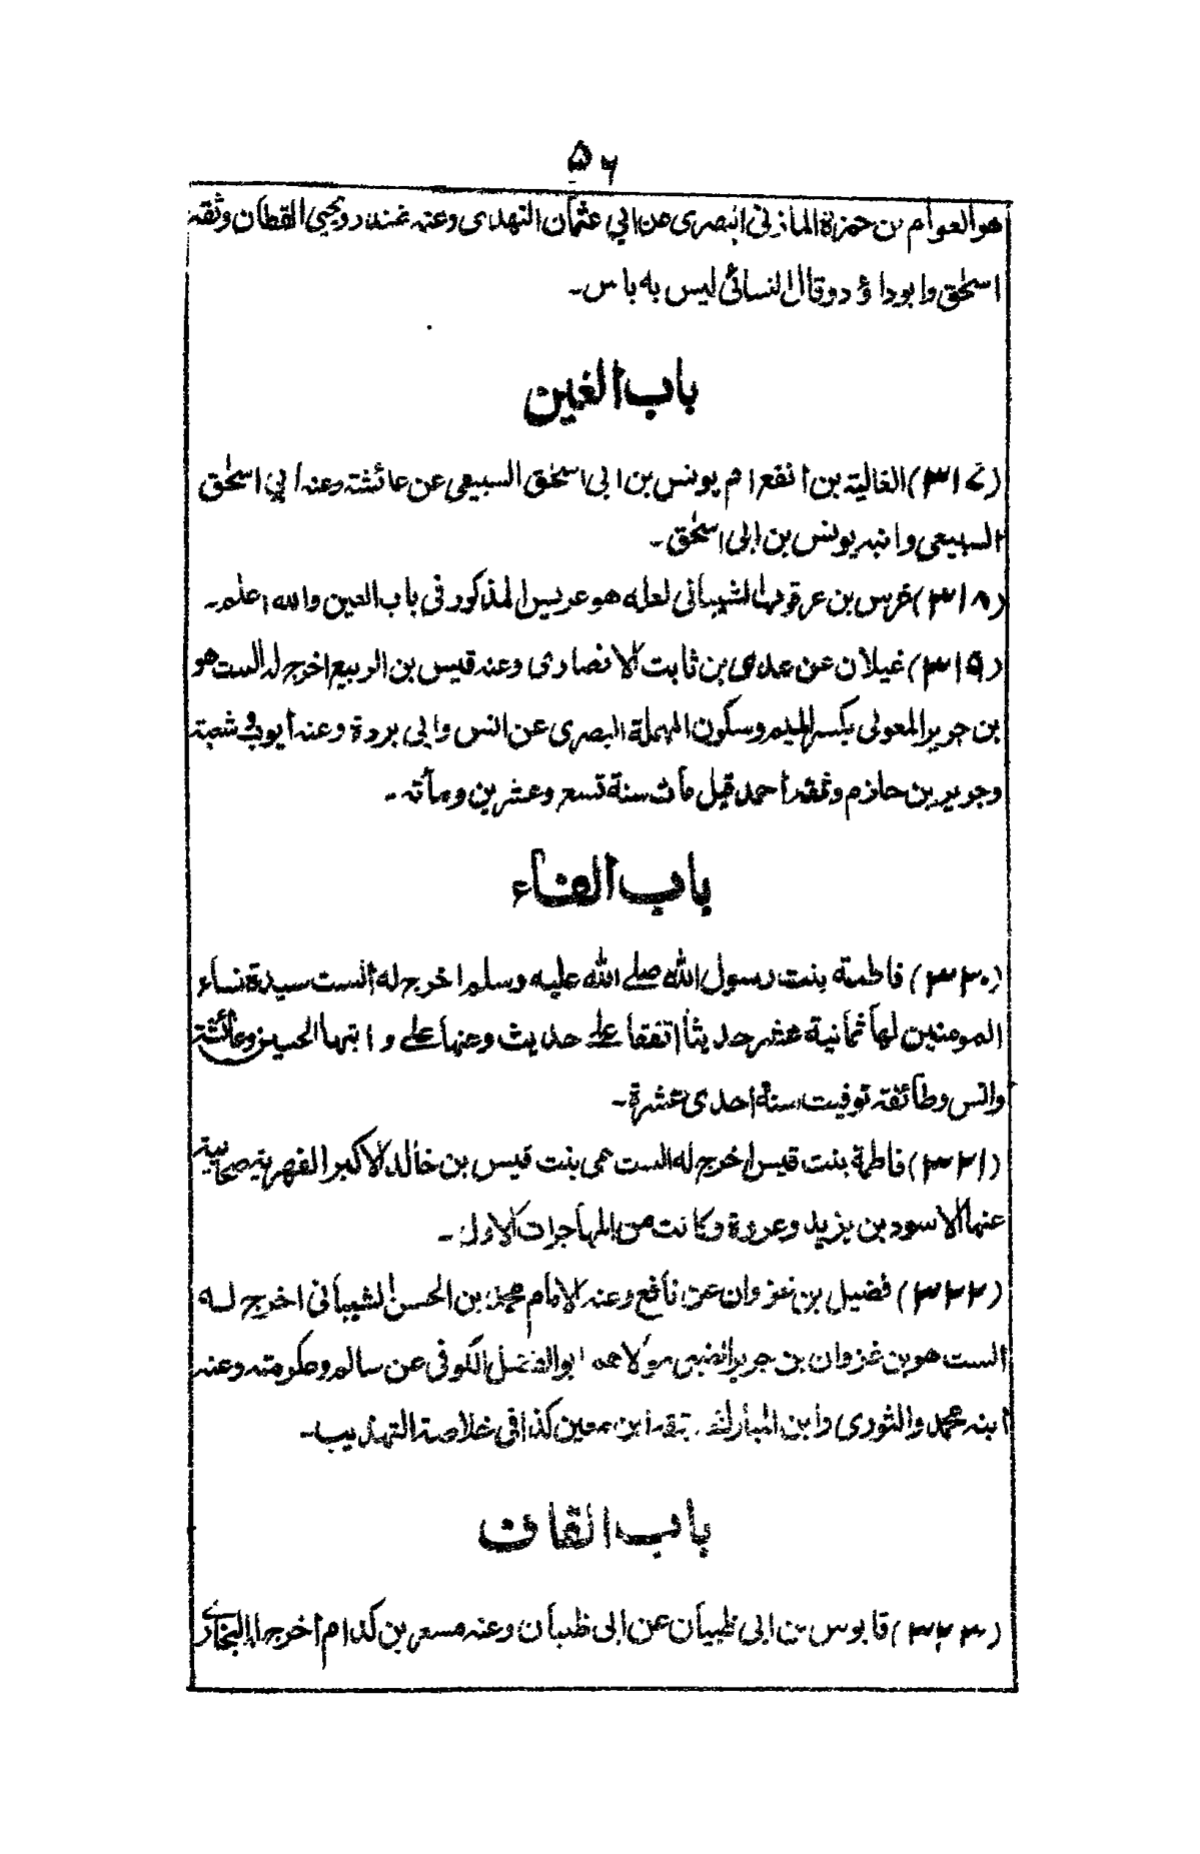 ۵۶
هو العوام بن حمزة المازني البصرى عن ابي عثمان النهدى وعنه غندر ويحيى القطان وثقه
اسحٰق وابوداؤد وقال النسائى ليس به باس۔
باب الغين
(۳۱۷) الغالية بن انفع ام يونس بن ابى اسحٰق السبيعى عن عائشة وعنه ابي اسحٰق
السبيعى وابنه يونس بن ابى اسحٰق۔
(۳۱۸) غرس بن عرقوب الشيبانى لعله هو عريس المذكور فى باب العين والله اعلم۔
(۳۱۹) غيلان عن عدى بن ثابت الانصارى وعنه قيس بن الربيع اخرج له الست هو
بن جرير المعولى بكسر الميم وسكون المهملة البصرى عن انس وابى بردة وعنه ايوب و شعبة
وجرير بن حازم وثقه احمد قيل مات سنة تسع وعشرين ومأته۔
باب الفاء
(۳۲۰) فاطمة بنت رسول الله صلے الله عليه وسلم اخرج له الست سيدة نساء
المومنين لها ثمانية عشر حديثا اتفقا علے حديث وعنها علے و ابنها الحسين وعائشة
وانس وطائفة توفيت سنة احدى عشرة۔
(۳۲۱) فاطمة بنت قيس اخرج له الست هى بنت قيس بن خالد الاكبر الفهرية صحابية
عنها الاسود بن يزيد وعروة وكانت من المهاجرات الاول۔
(۳۲۲) فضيل بن غزوان عن نافع وعنه الامام محمد بن الحسن الشيبانى اخرج له
الست هو بن غزوان بن جرير الضبى مولاهم ابو الفضل الكوفى عن سالم وعكرمة وعنه
ابنه محمد والثورى وابن المبارك وثقه ابن معين كذا فى خلاصة التهذيب۔
باب القاف
(۳۲۳) قابوس بن ابى ظبيان عن ابى ظبيان وعنه مسعر بن كدام اخرج له البخارى